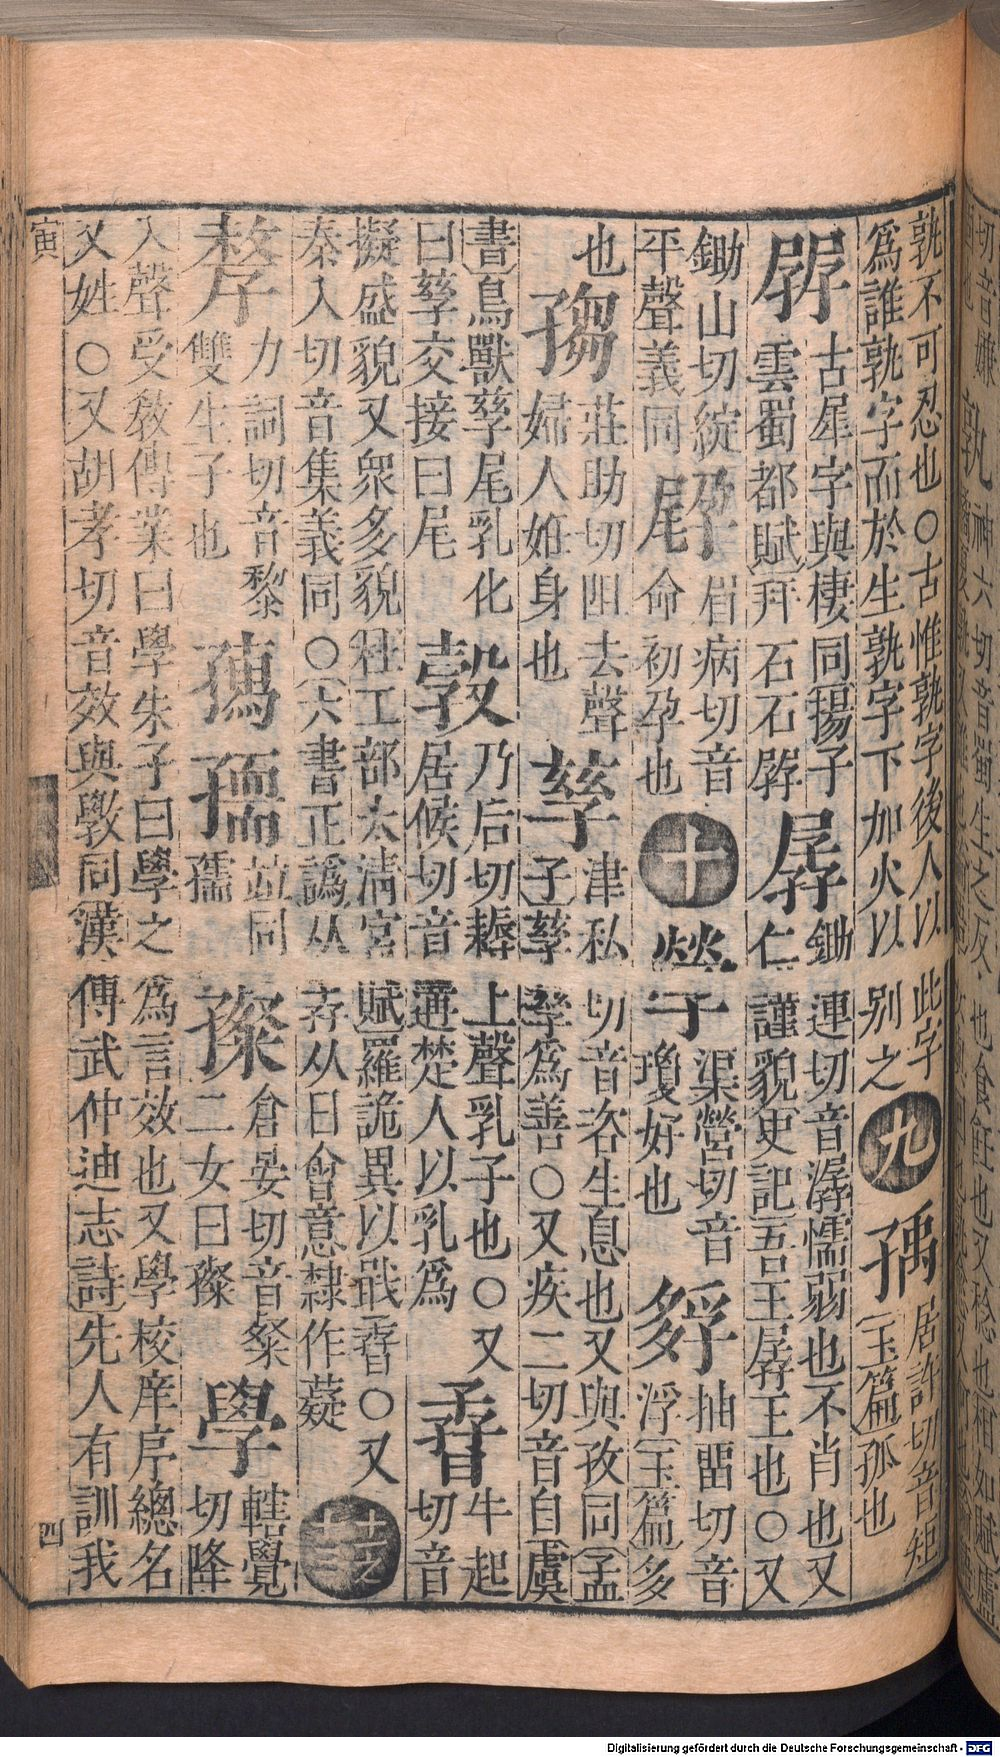 孰不可忍也○古惟孰字後人以此字
爲誰孰字而於生孰字下加火以别之
九
居許切音矩
[玉篇]孤也
古犀字與棲同[揚子
雲蜀都賦]拜石石
孱
鋤連切音潺懦弱也不肖也又
仁謹貌史記吾王孱王也○又
鋤山切綻
平聲義同
眉病切音
命初孕也
十
渠營切音
瓊好也
抽畱切音
浮[玉篇]多
也
㑳
莊助切阻去聲
婦人妊身也
孳
津私切音咨生息也又與孜同[孟
子]孳孳爲善○又疾二切音自[虞
書]鳥獸孳尾乳化
曰孳交接曰尾
㝅
乃后切耨上聲乳子也○又
居候切音遘楚人以乳爲
孴
牛起
切音
擬盛貌又衆多貌[杜工部太清宮賦]羅詭異以戢孴○又
秦入切音集義同○[六書正譌]从孨从日會意隸作薿
十一之
十三
孷
力詞切音黎
雙生子也
並同
孺
倉晏切音粲
二女曰
學
轄覺
切降
入聲受敎傳業曰學朱子曰學之爲言效也又學校庠序總名
又姓○又胡孝切音效與斆同[漢傅武仲迪志詩]先人有訓我
寅
四
Digitalisierung gefördert durch die Deutsche Forschungsgemeinschaft - DFG